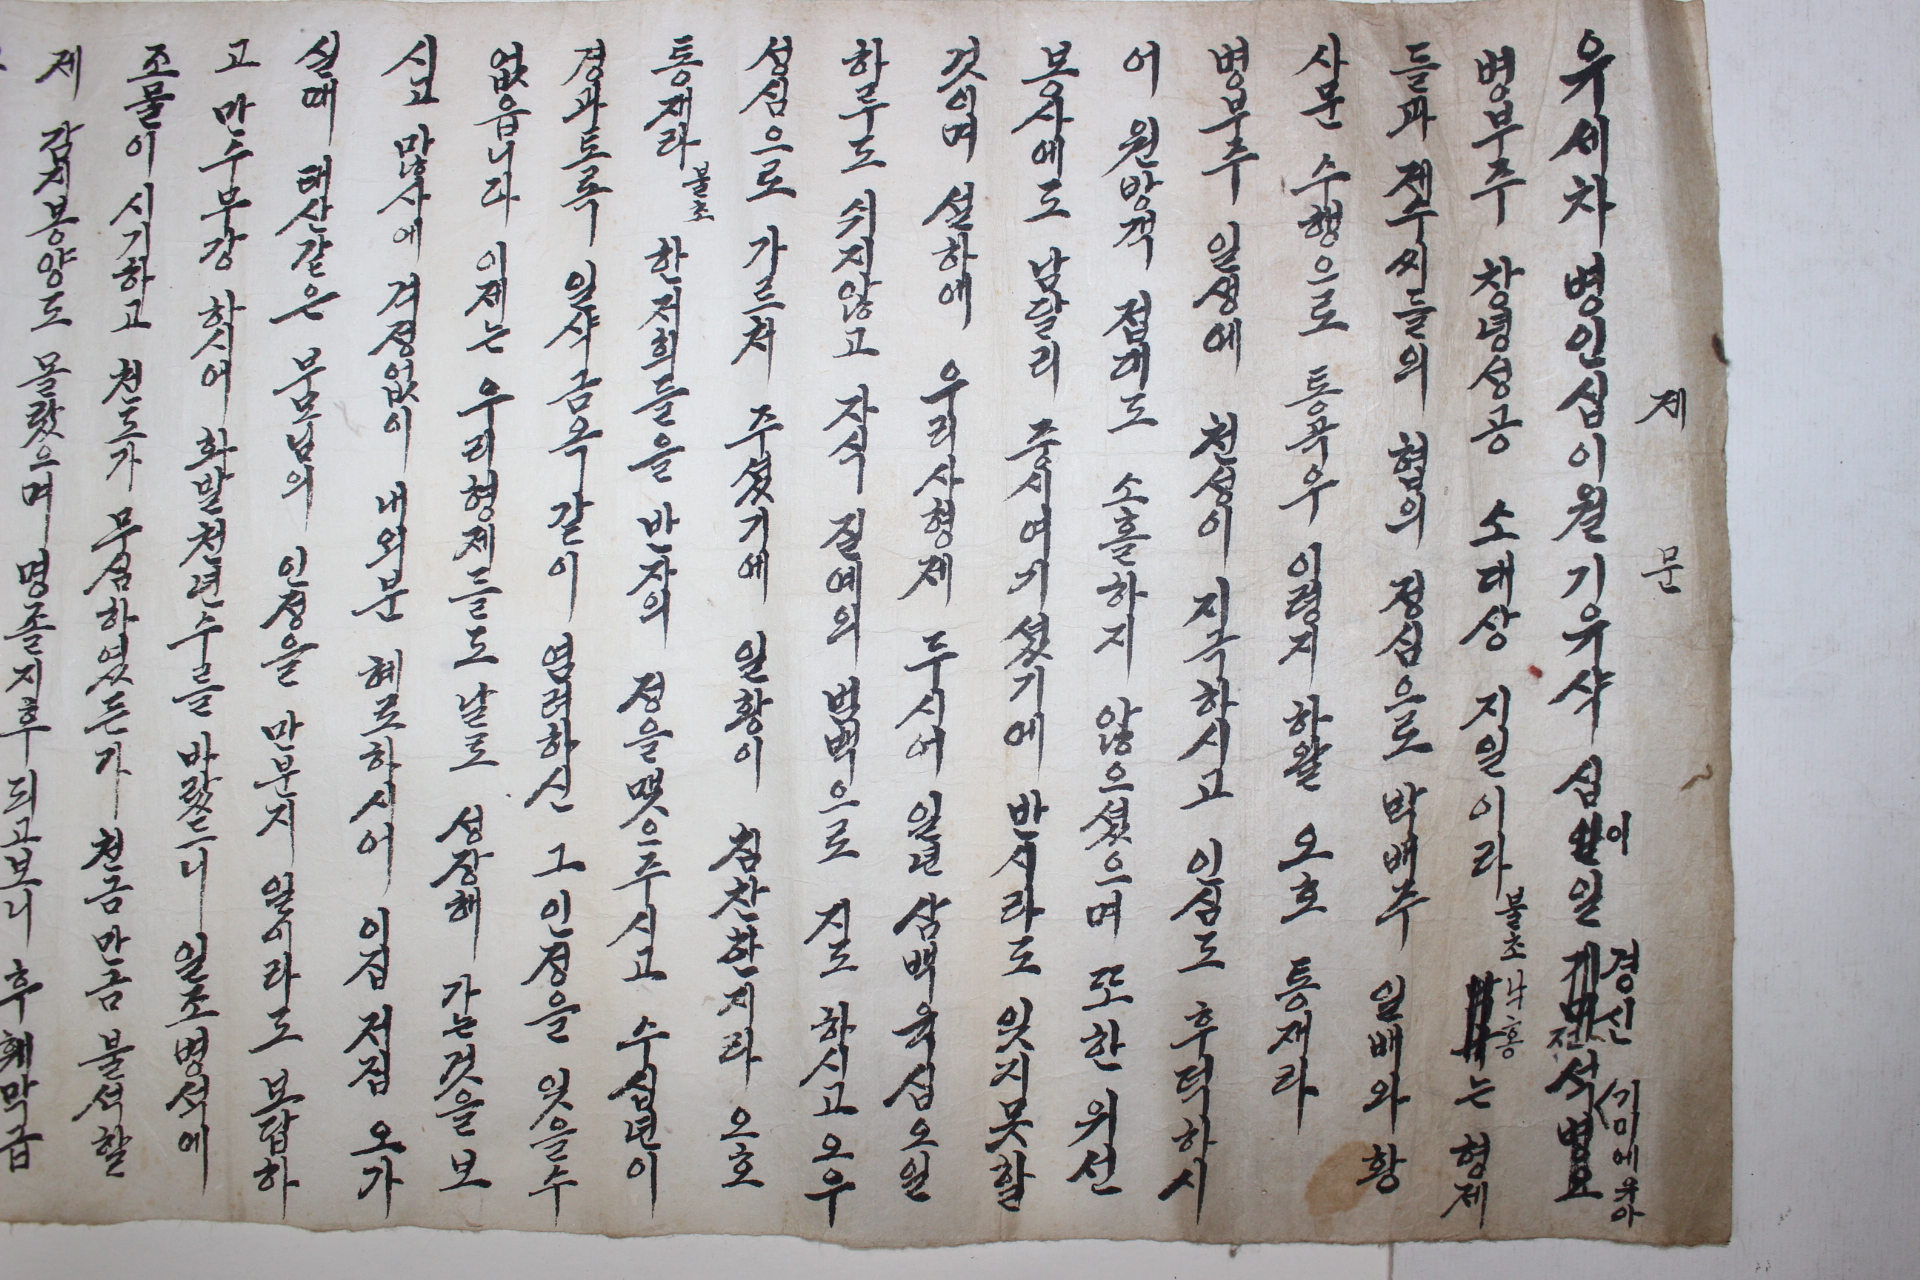 제 문
유세차 병인십이월기유삭 십이일 경신
병부주 창녕성공 소대상 지일이라 불초 낙홍 는 형제
들과 제수씨들의 협의 정심으로 박배주 일배와 황
사문 수행으로 통곡우 이령지 하왈 오호 통재라
병부주 일생에 천성이 지극하시고 인심도 후덕하시
어 원방객 접대도 소홀하지 않으셨으며 또한 위선
봉사에도 남달리 주시여기셨기에 반시라도 잊지못할
것이며 설하에 우리사형제 두시어 일년 삼백육십오일
하루도 쉬지않고 자식 질예의 범백으로 지도 하시고 오우
성심으로 가르처 주셨기에 일황이 침찬한지라 오호
통재라 불초 한저희들을 반자의 정을맺으주시고 수십년이
경과토록 일삭금옥 같이 염려하신 그 인정을 잊을수
없읍니다 이제는 우리형제들도 날로 성장해 가는것을 보
시고 많사에 겨정없이 내외분 혜로하시어 이집 저집 오가
실때 태산같은 부모님의 인정을 만분지 일이라도 보답하
고 만수무강 하시어 화발천년수를 바랐드니 일조병석에
조물이 시기하고 천도가 무심하였든가 천금만금 불석할
제 감지봉양도 몰랐으며 명졸지후 되고보니 후회막급